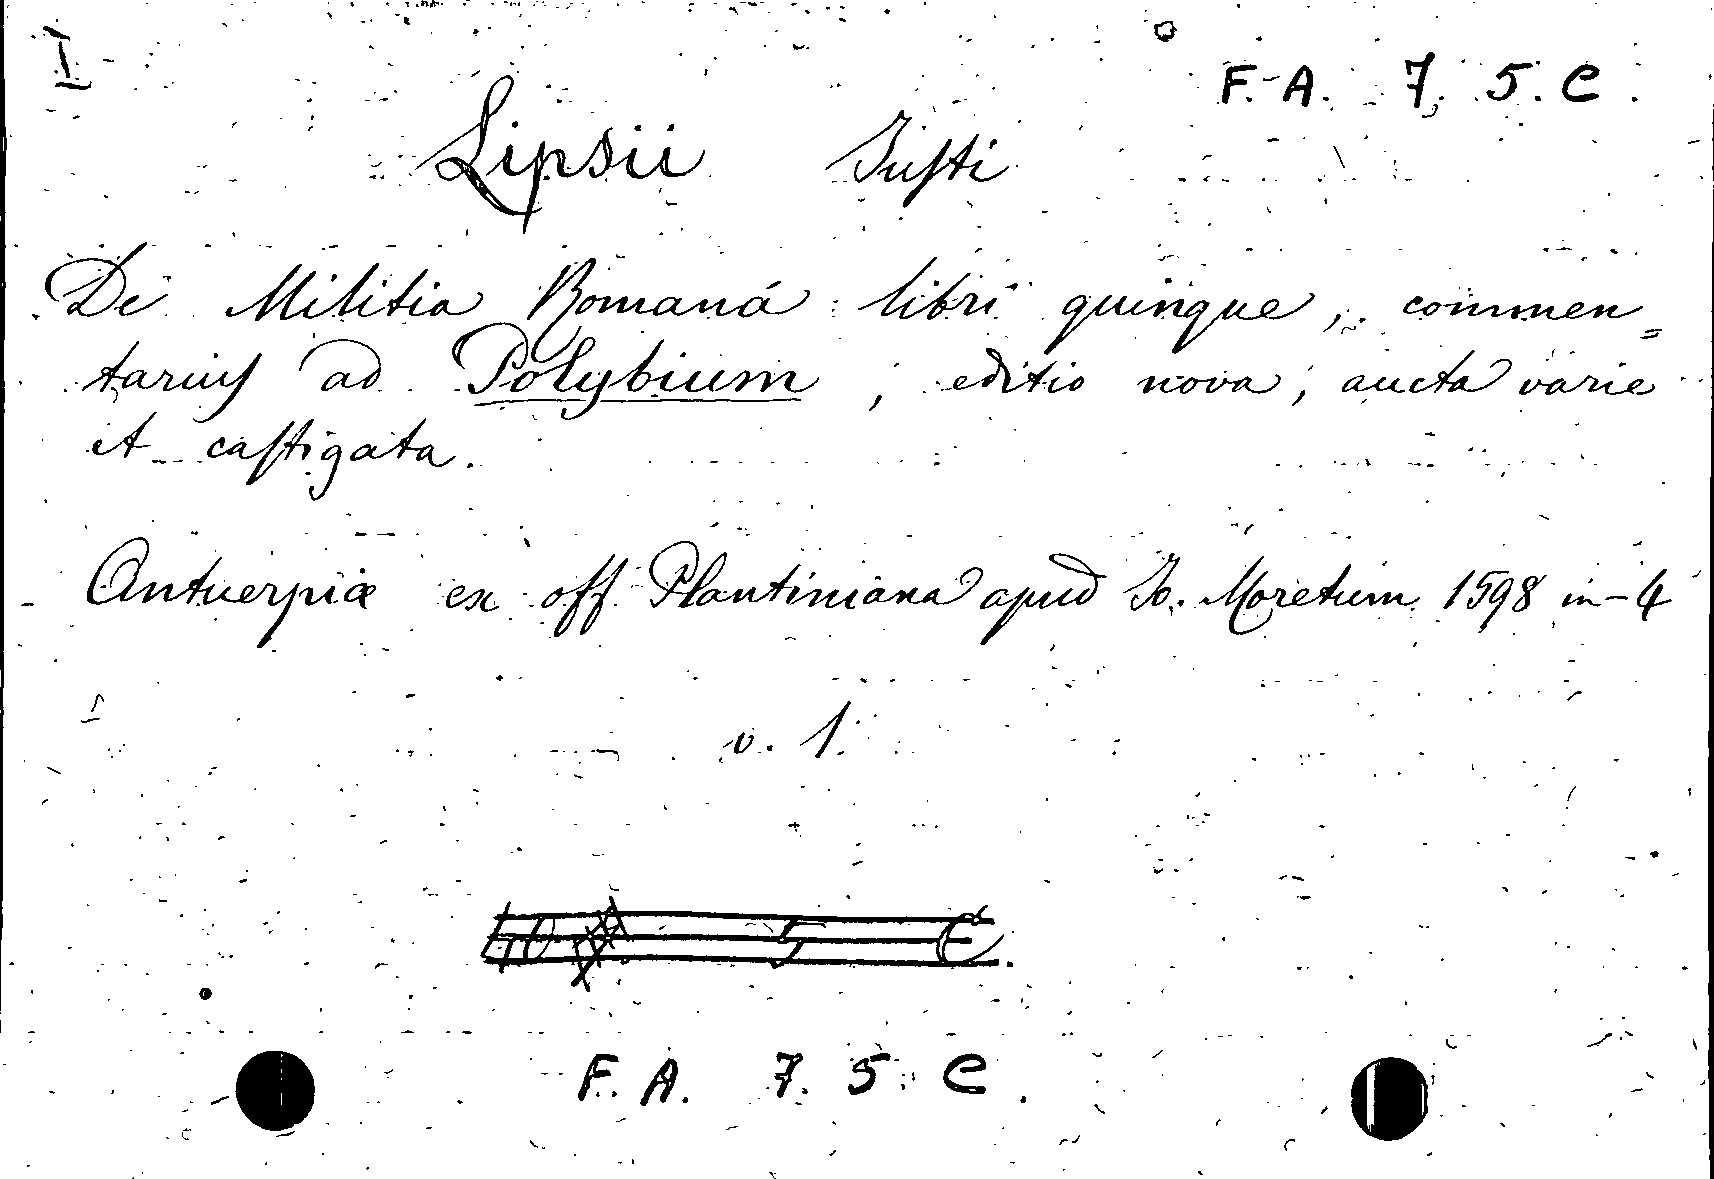 I
F. A. 7. 5. C.
Lipsii Justi
De Militia Romaná libri quinque, commen=
tariuſ ad Polybium, editio nova, aucta varie
et caſtigata.
Antuerpiæ ex off Plantiniana apud Jo. Moretum 1598 in-4
v. 1.
5 C.
F. A. 7. 5. C.